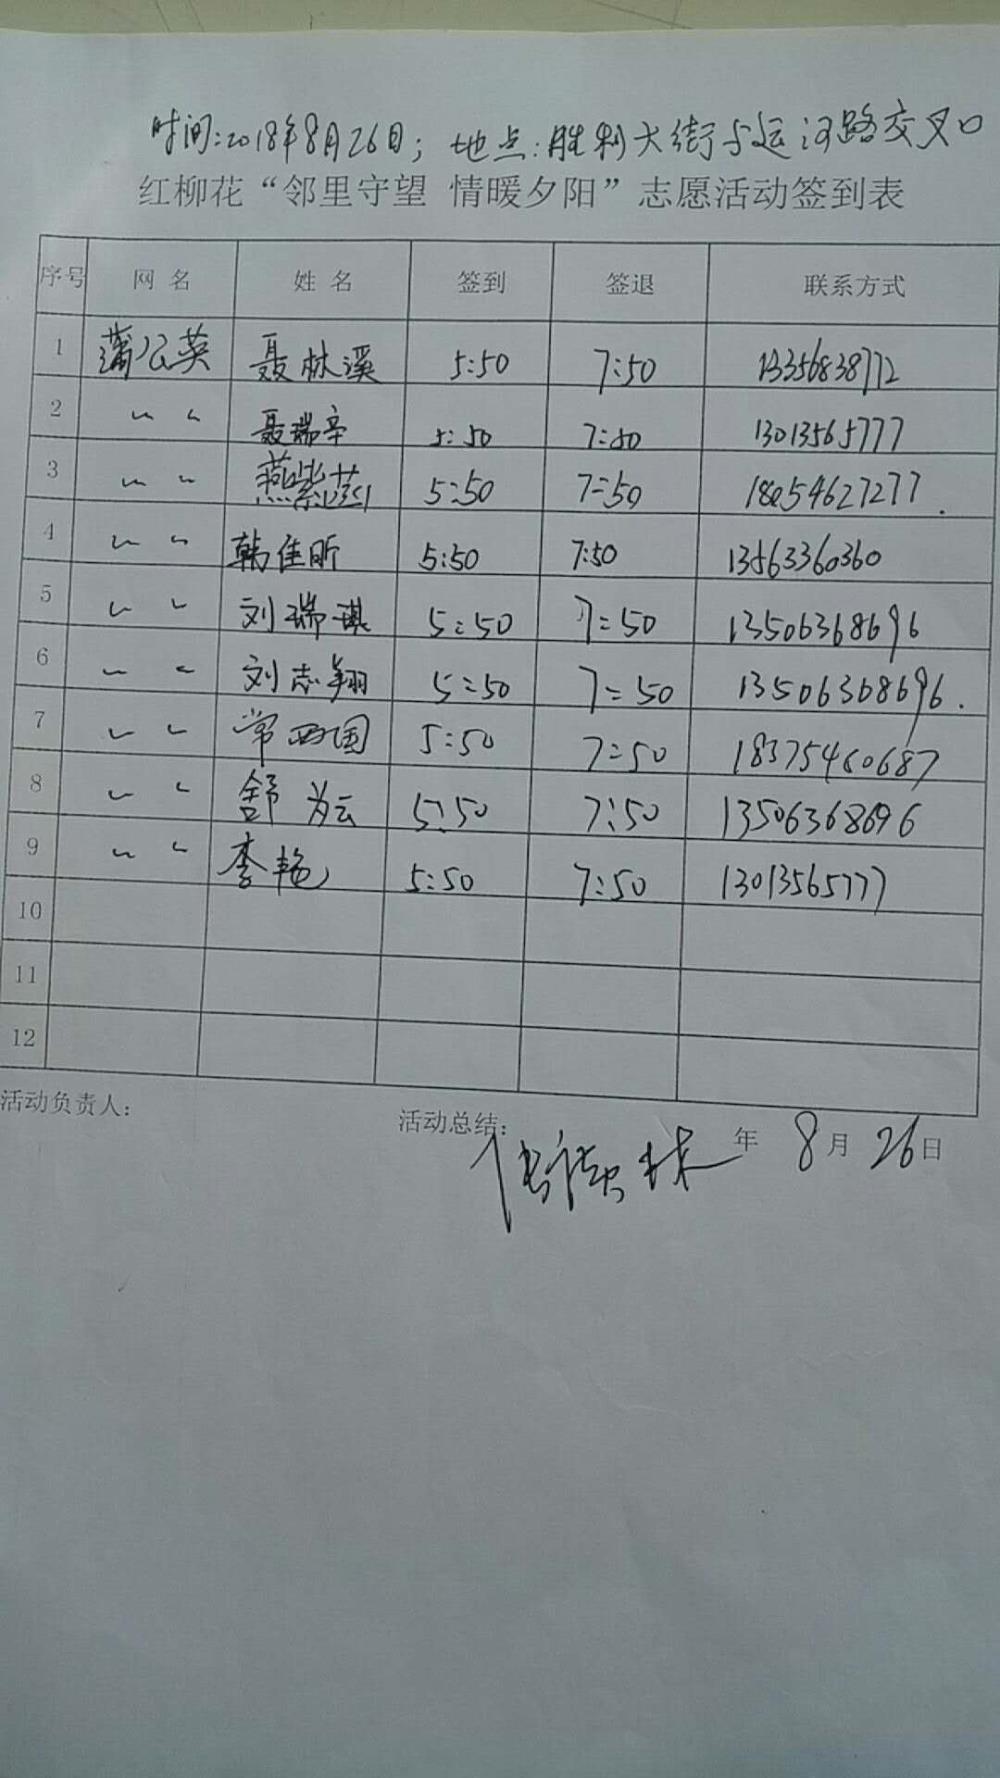 时间:2018年8月26日; 地点:胜利大街与运河路交叉口
红柳花“邻里守望 情暖夕阳”志愿活动签到表
序号 网名 姓名 签到 签退 联系方式
1 蒲公英 聂林溪 5:50 7:50 13356838772
2 〃 聂瑞辛 5:50 7:50 13013565777
3 〃 燕紫 5:50 7:50 18054627277.
4 〃 韩佳昕 5:50 7:50 13563360360
5 〃 刘瑞琪 5:50 7:50 13506368696
6 〃 刘志翔 5:50 7:50 13506368696.
7 〃 常西国 5:50 7:50 18375460687
8 〃 舒为云 5:50 7:50 13506368696
9 〃 李艳 5:50 7:50 13013565777
10
11
12
活动负责人: 活动总结: 年 8月 26日